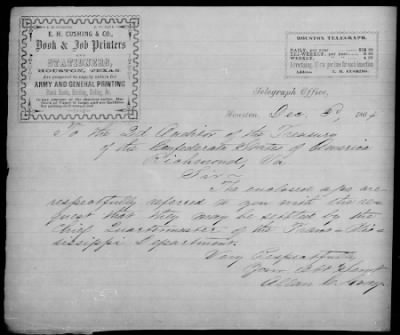 E. H. CUSHING & CO.,
Book & Job Printers
AND
STATIONERS,
HOUSTON, TEXAS.
ARMY AND GENERAL PRINTING
HOUSTON TELEGRAPH.
DAILY, per year
TRI-WEEKLY, per year
WEEKLY,
Address E. H. CUSHING.
Telegraph Office,
Houston Dec 186
To the 2d Auditor of the Treasury
of the Confederate States of America
Richmond, Va
Sir
The enclosed a/cs are
respectfully referred to you with the re-
quest that they may be settled by the
Chief Quartermaster of the Trans-Mis-
sissippi Department.
Very Respectfully
Your Obt Servt